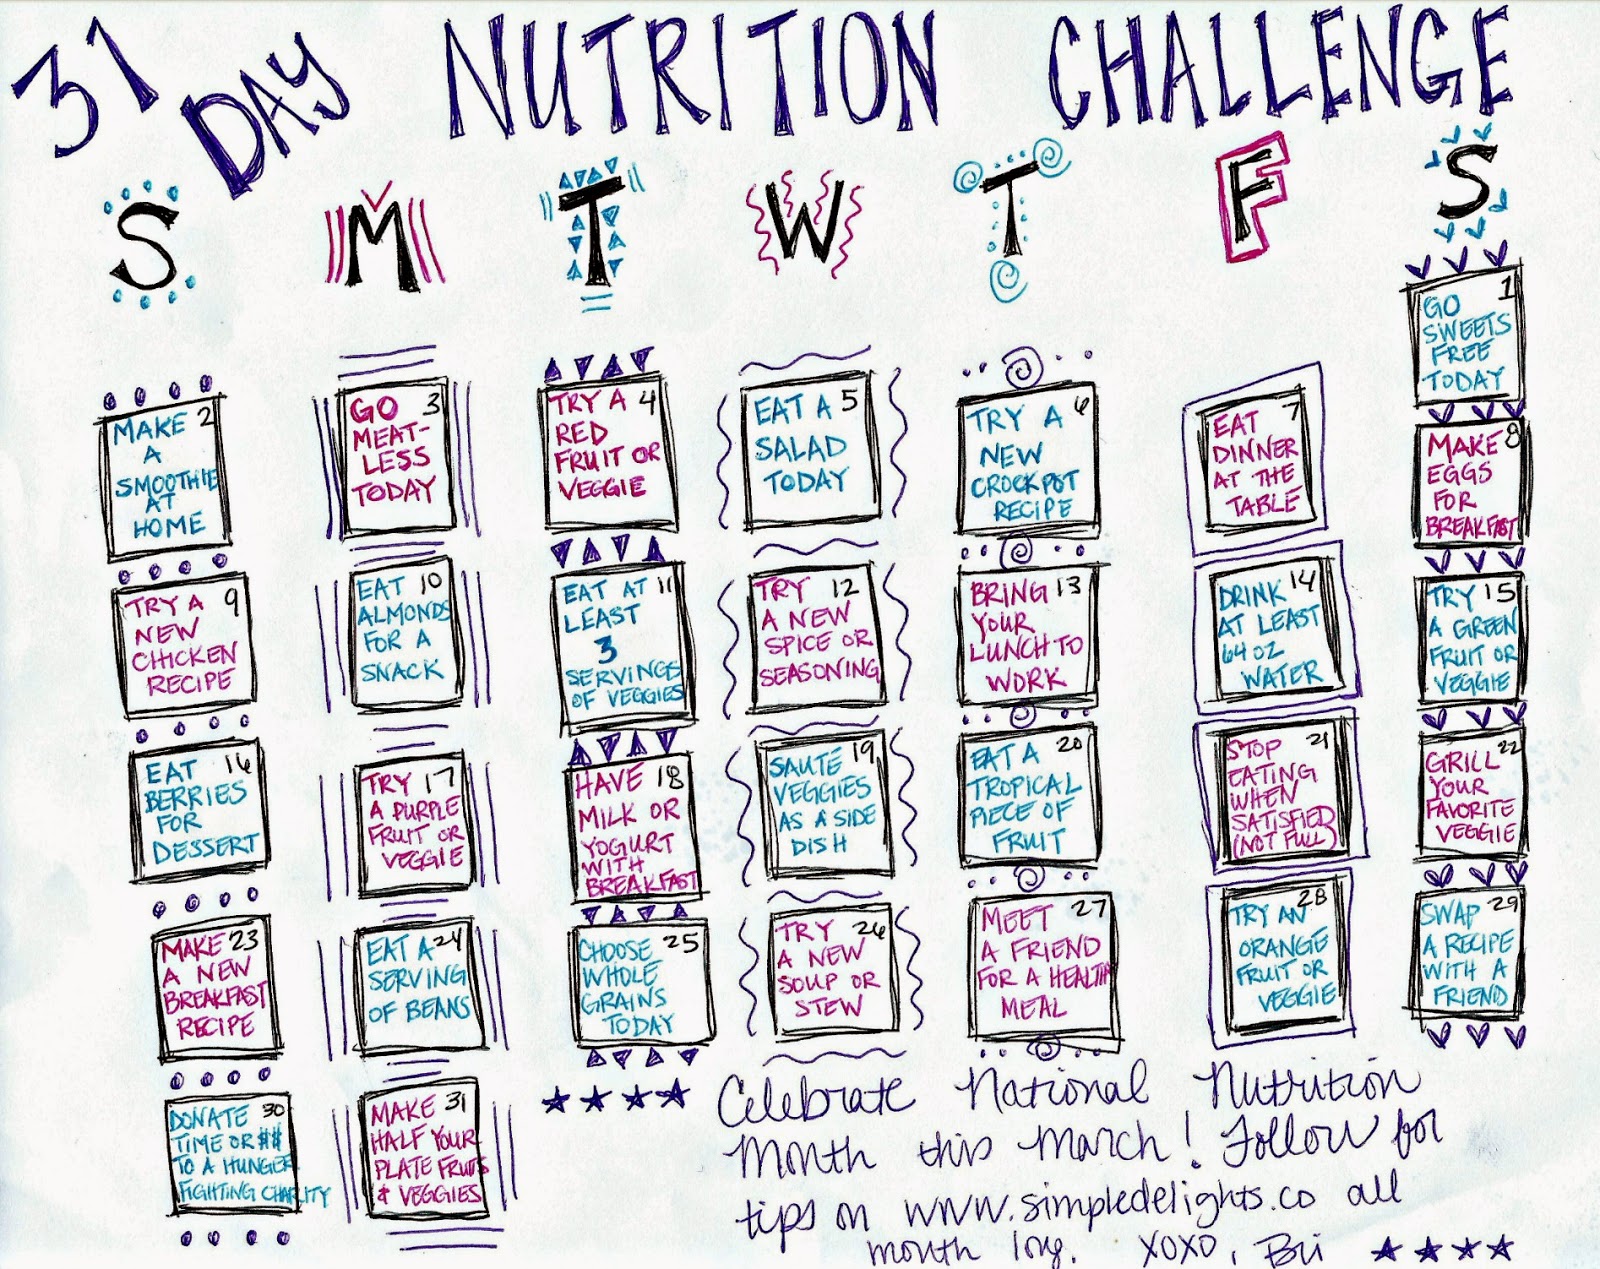 31 DAY NUTRITION CHALLENGE
S M T W T F S
1
GO
SWEETS
FREE
TODAY
2
MAKE
A
SMOOTHIE
AT
HOME
3
GO
MEAT-
LESS
TODAY
4
TRY A
RED
FRUIT OR
VEGGIE
5
EAT A
SALAD
TODAY
6
TRY A
NEW
CROCKPOT
RECIPE
7
EAT
DINNER
AT THE
TABLE
8
MAKE
EGGS
FOR
BREAKFAST
9
TRY A
NEW
CHICKEN
RECIPE
10
EAT
ALMONDS
FOR A
SNACK
11
EAT AT
LEAST
3
SERVINGS
OF VEGGIES
12
TRY
A NEW
SPICE OR
SEASONING
13
BRING
YOUR
LUNCH TO
WORK
14
DRINK
AT LEAST
64 OZ
WATER
15
TRY
A GREEN
FRUIT OR
VEGGIE
16
EAT
BERRIES
FOR
DESSERT
17
TRY
A PURPLE
FRUIT OR
VEGGIE
18
HAVE
MILK OR
YOGURT
WITH
BREAKFAST
19
SAUTE
VEGGIES
AS A SIDE
DISH
20
EAT A
TROPICAL
PIECE OF
FRUIT
21
STOP
EATING
WHEN
SATISFIED
(NOT FULL)
22
GRILL
YOUR
FAVORITE
VEGGIE
23
MAKE
A NEW
BREAKFAST
RECIPE
24
EAT A
SERVING
OF BEANS
25
CHOOSE
WHOLE
GRAINS
TODAY
26
TRY
A NEW
SOUP OR
STEW
27
MEET
A FRIEND
FOR A HEALTHY
MEAL
28
TRY AN
ORANGE
FRUIT OR
VEGGIE
29
SWAP
A RECIPE
WITH A
FRIEND
30
DONATE
TIME OR $$
TO A HUNGER
FIGHTING CHARITY
31
MAKE
HALF YOUR
PLATE FRUITS
& VEGGIES
Celebrate National Nutrition
Month this March! Follow for
tips on www.simpledelights.co all
month long. XOXO, Bri